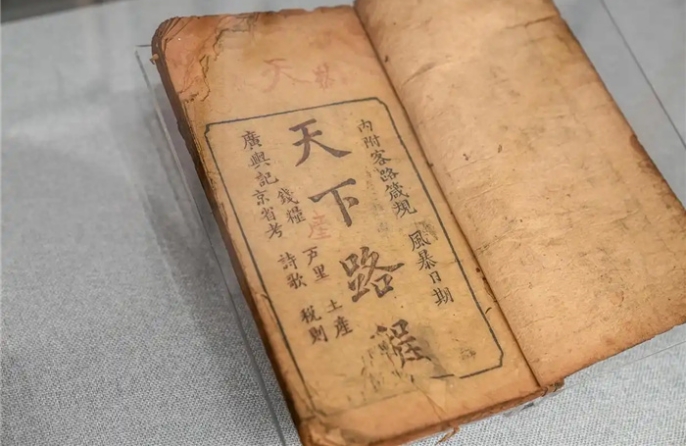 天
內附客路箴規 風暴日期
天下路程
錢糧 戶里 土産
廣輿記京省考 詩歌 稅則